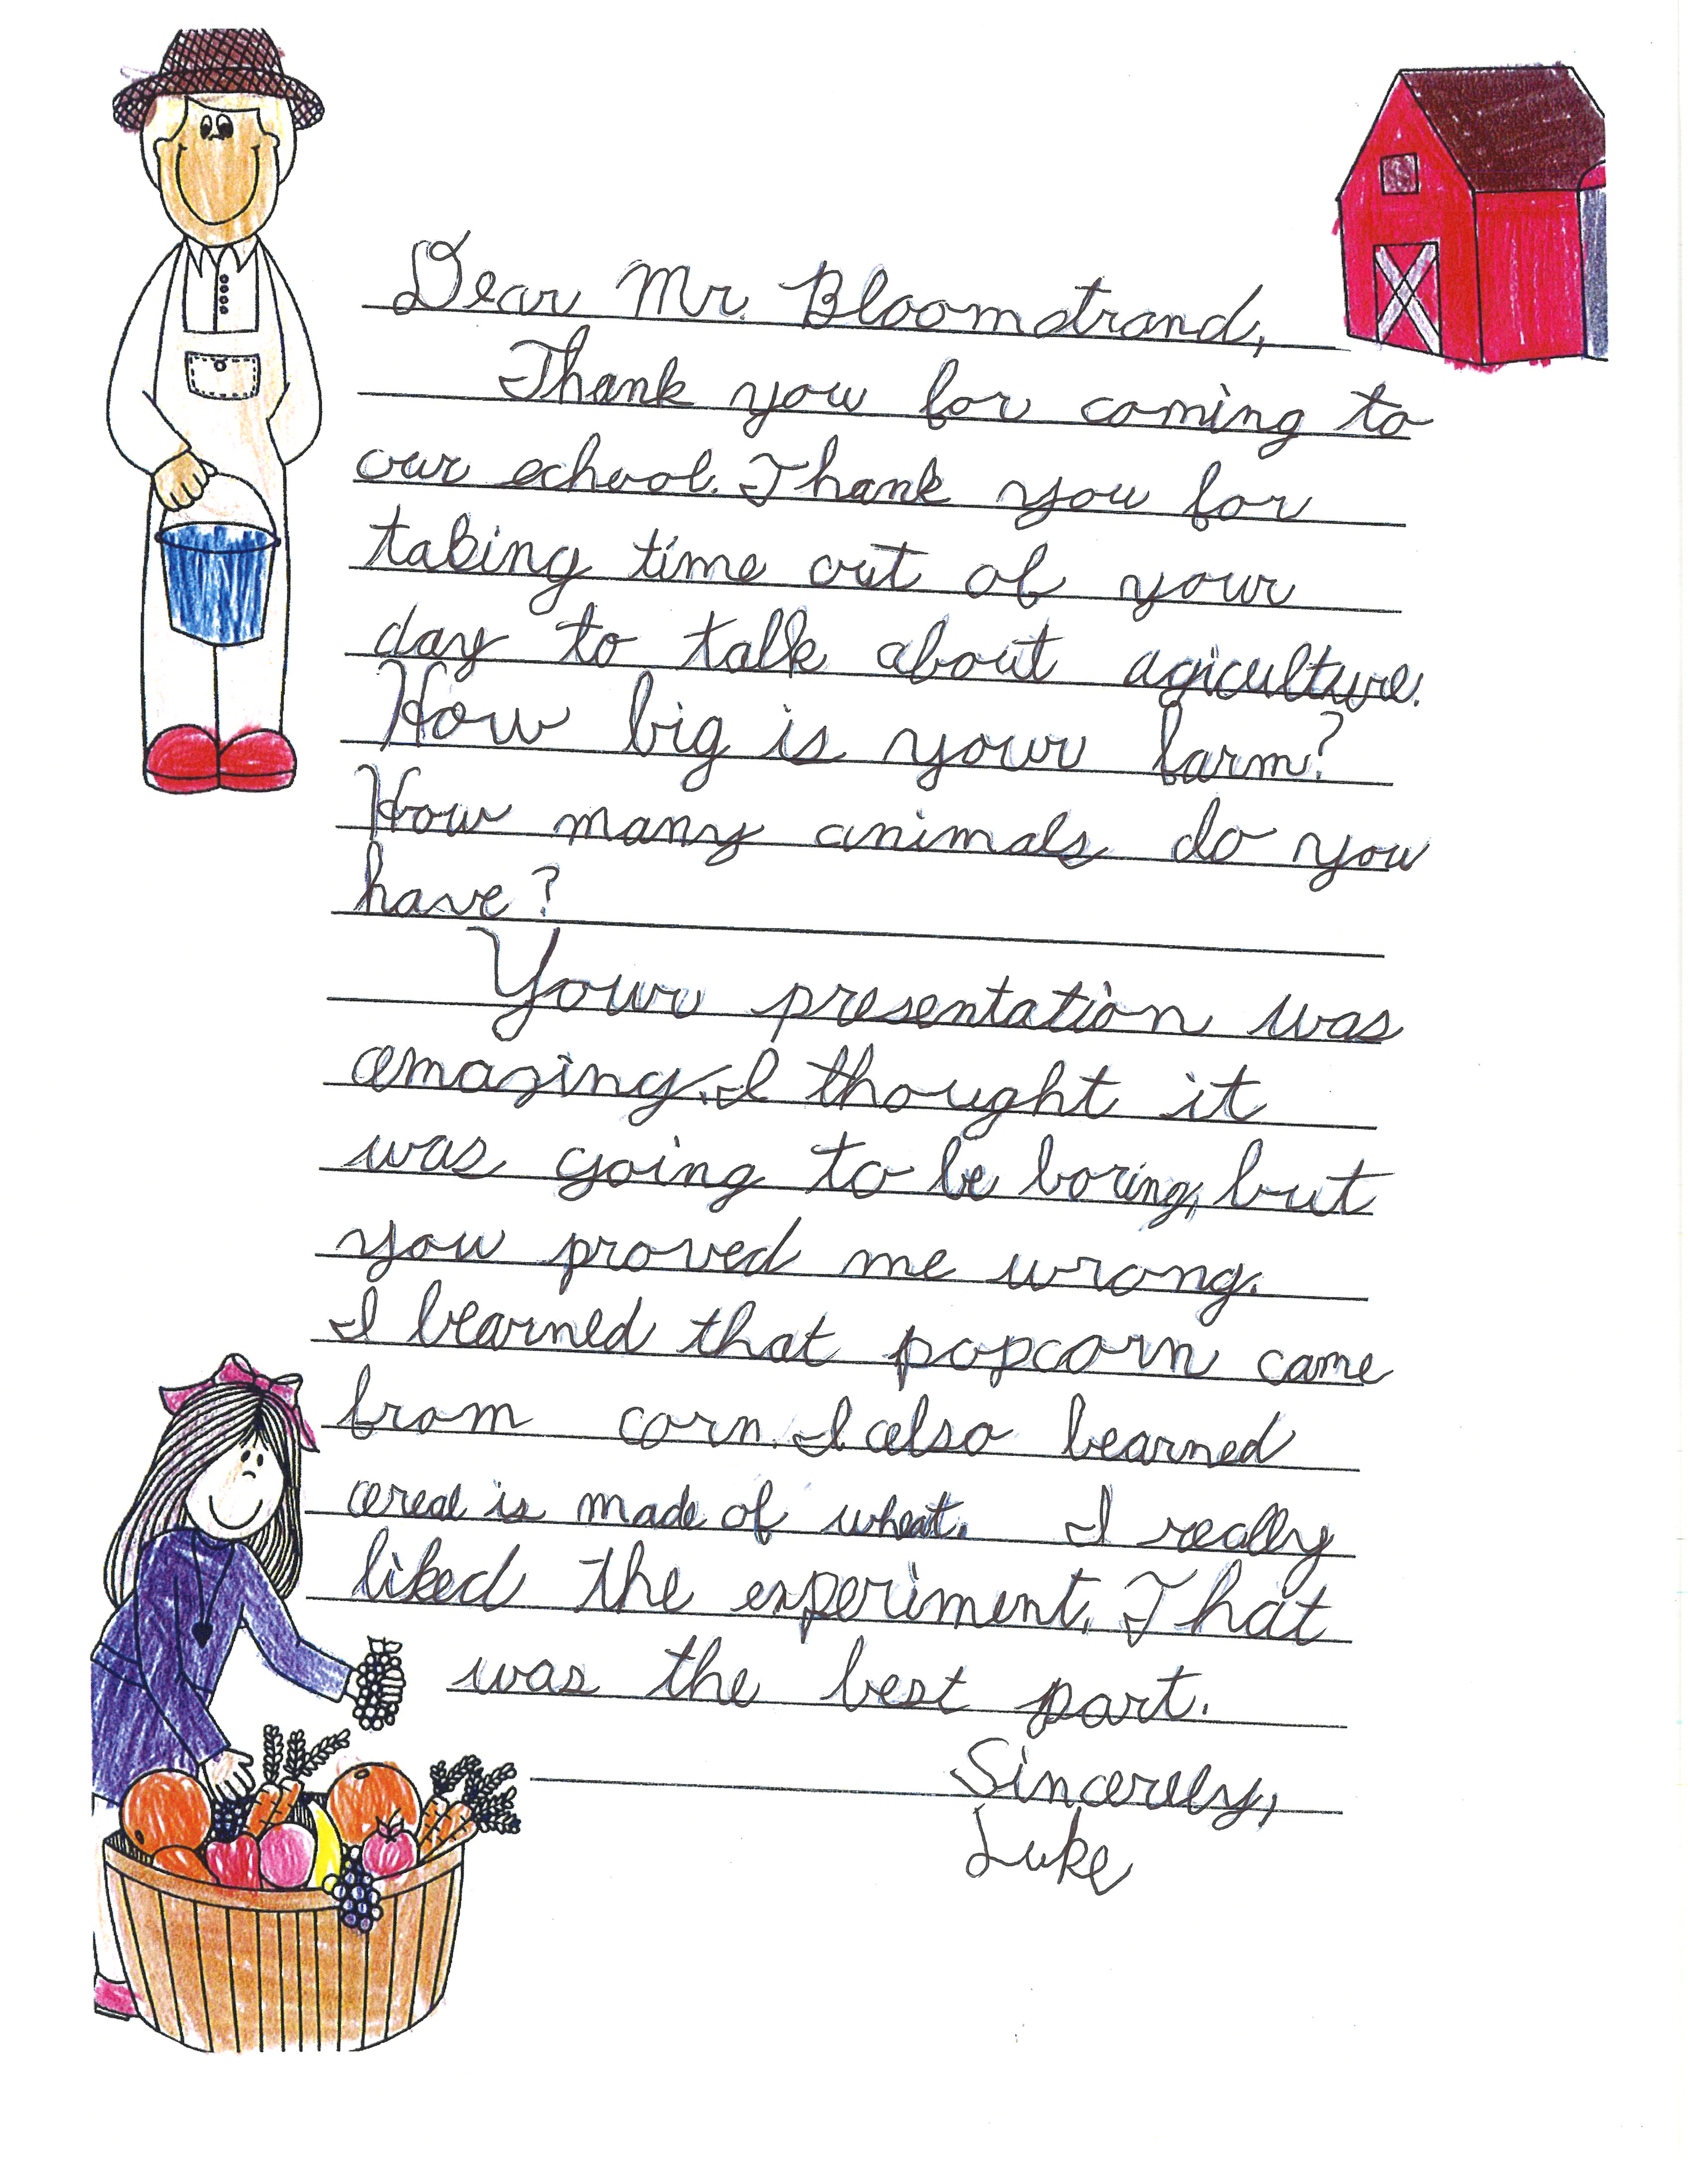 Dear Mr. Bloomstrand,
Thank you for coming to
our school. Thank you for
taking time out of your
day to talk about agiculture.
How big is your farm?
How many animals do you
have?
Your presentation was
amazing. I thought it
was going to be boring, but
you proved me wrong.
I learned that popcorn came
from corn. I also learned
cereal is made of wheat. I really
liked the experiment. That
was the best part.
Sincerely,
Luke